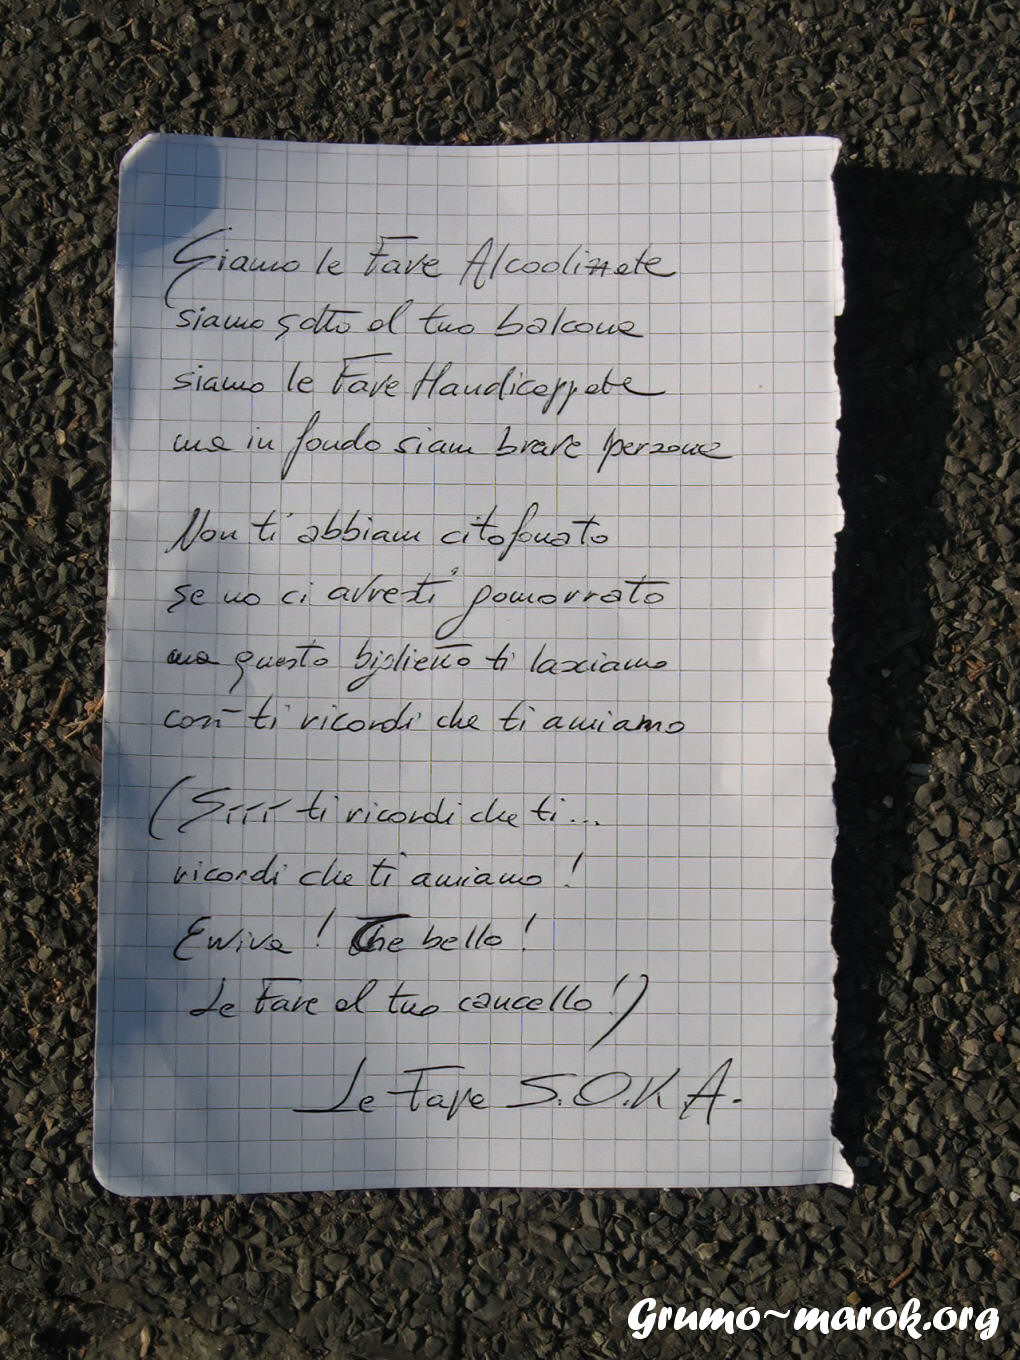 Siamo le Fave Alcoolizzate
siamo sotto al tuo balcone
siamo le Fave Handicappate
ma in fondo siam brave perzone
Non ti abbiam citofonato
se no ci avresti pomorrato
ma questo biglietto ti lasciamo
così ti ricordi che ti amiamo
(Sììì ti ricordi che ti...
ricordi che ti amiamo!
Evviva! Che bello!
Le Fave al tuo cancello!)
Le Fave S.O.K.A.
Grumo~marok.org